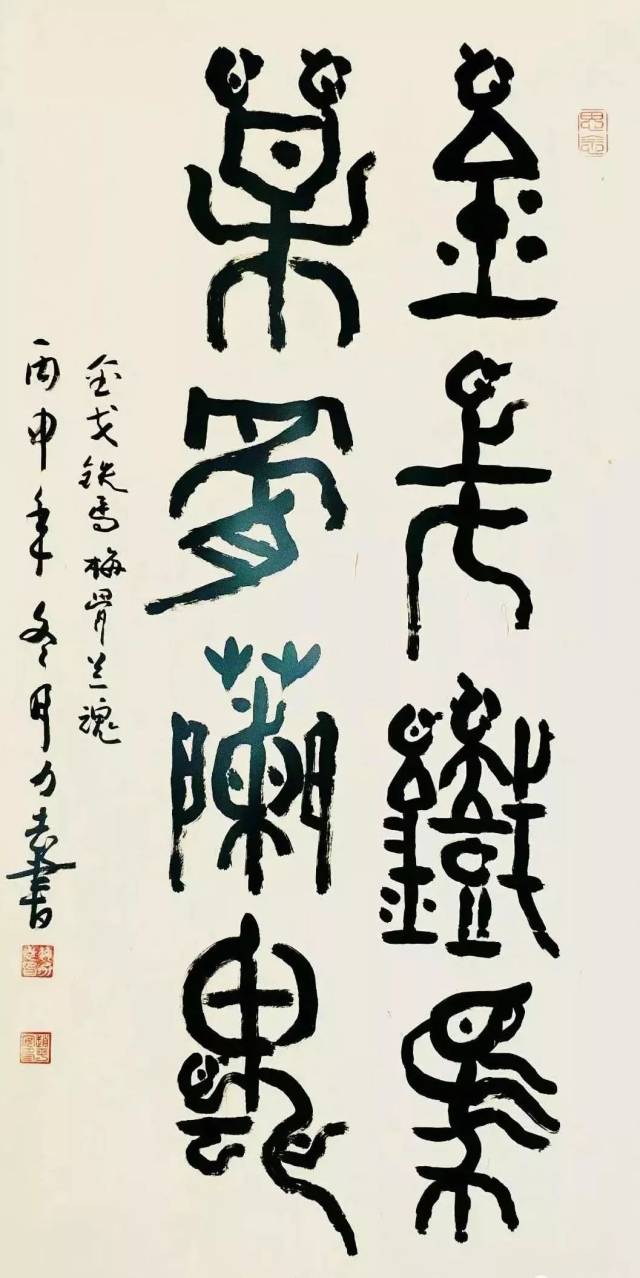 金戈鐵馬
梅骨蘭魂
金戈铁马梅骨兰魂
丙申年冬月力書